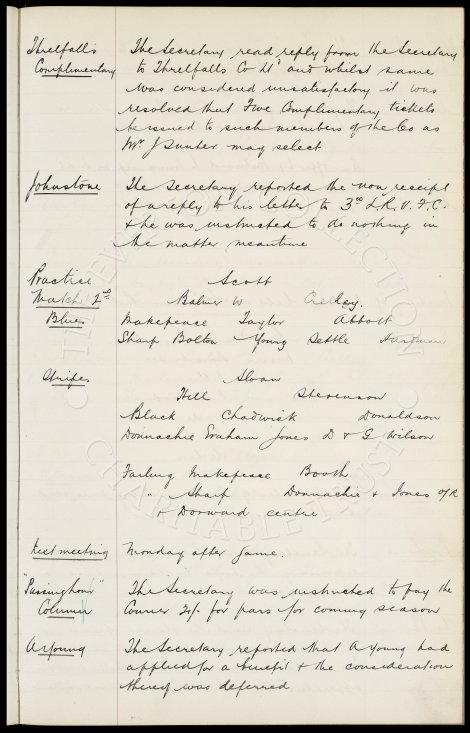 Threlfalls The Secretary read reply from the Secretary
Complimentary to Threlfalls Co Ld and whilst same
was considered unsatisfactory it was
resolved that Five Complimentary tickets
be issued to such members of the Co as
Mr J Hunter may select
Johnstone The Secretary reported the non receipt
of a reply to his letter to 3rd L.R.V.F.C.
& he was instructed to do nothing in
the matter meantime
Practice Scott
Match 2nd Balmer W Crelley.
Blues Makepeace Taylor Abbott
Sharp Bolton Young Settle Hardman
Stripes Sloan
Hill Stevenson
Black Chadwick Donaldson
Donnachie Graham Jones D & G Wilson
Failing Makepeace Booth
" Sharp Donnachie & Jones O/R
& Dorward centre
Next meeting Monday after game.
"Passing hour" The Secretary was instructed to pay the
Column Courier for pars for coming season
A Young The Secretary reported that A Young had
applied for a benefit & the consideration
thereof was deferred
THE EVERTON COLLECTION
CHARITABLE TRUST